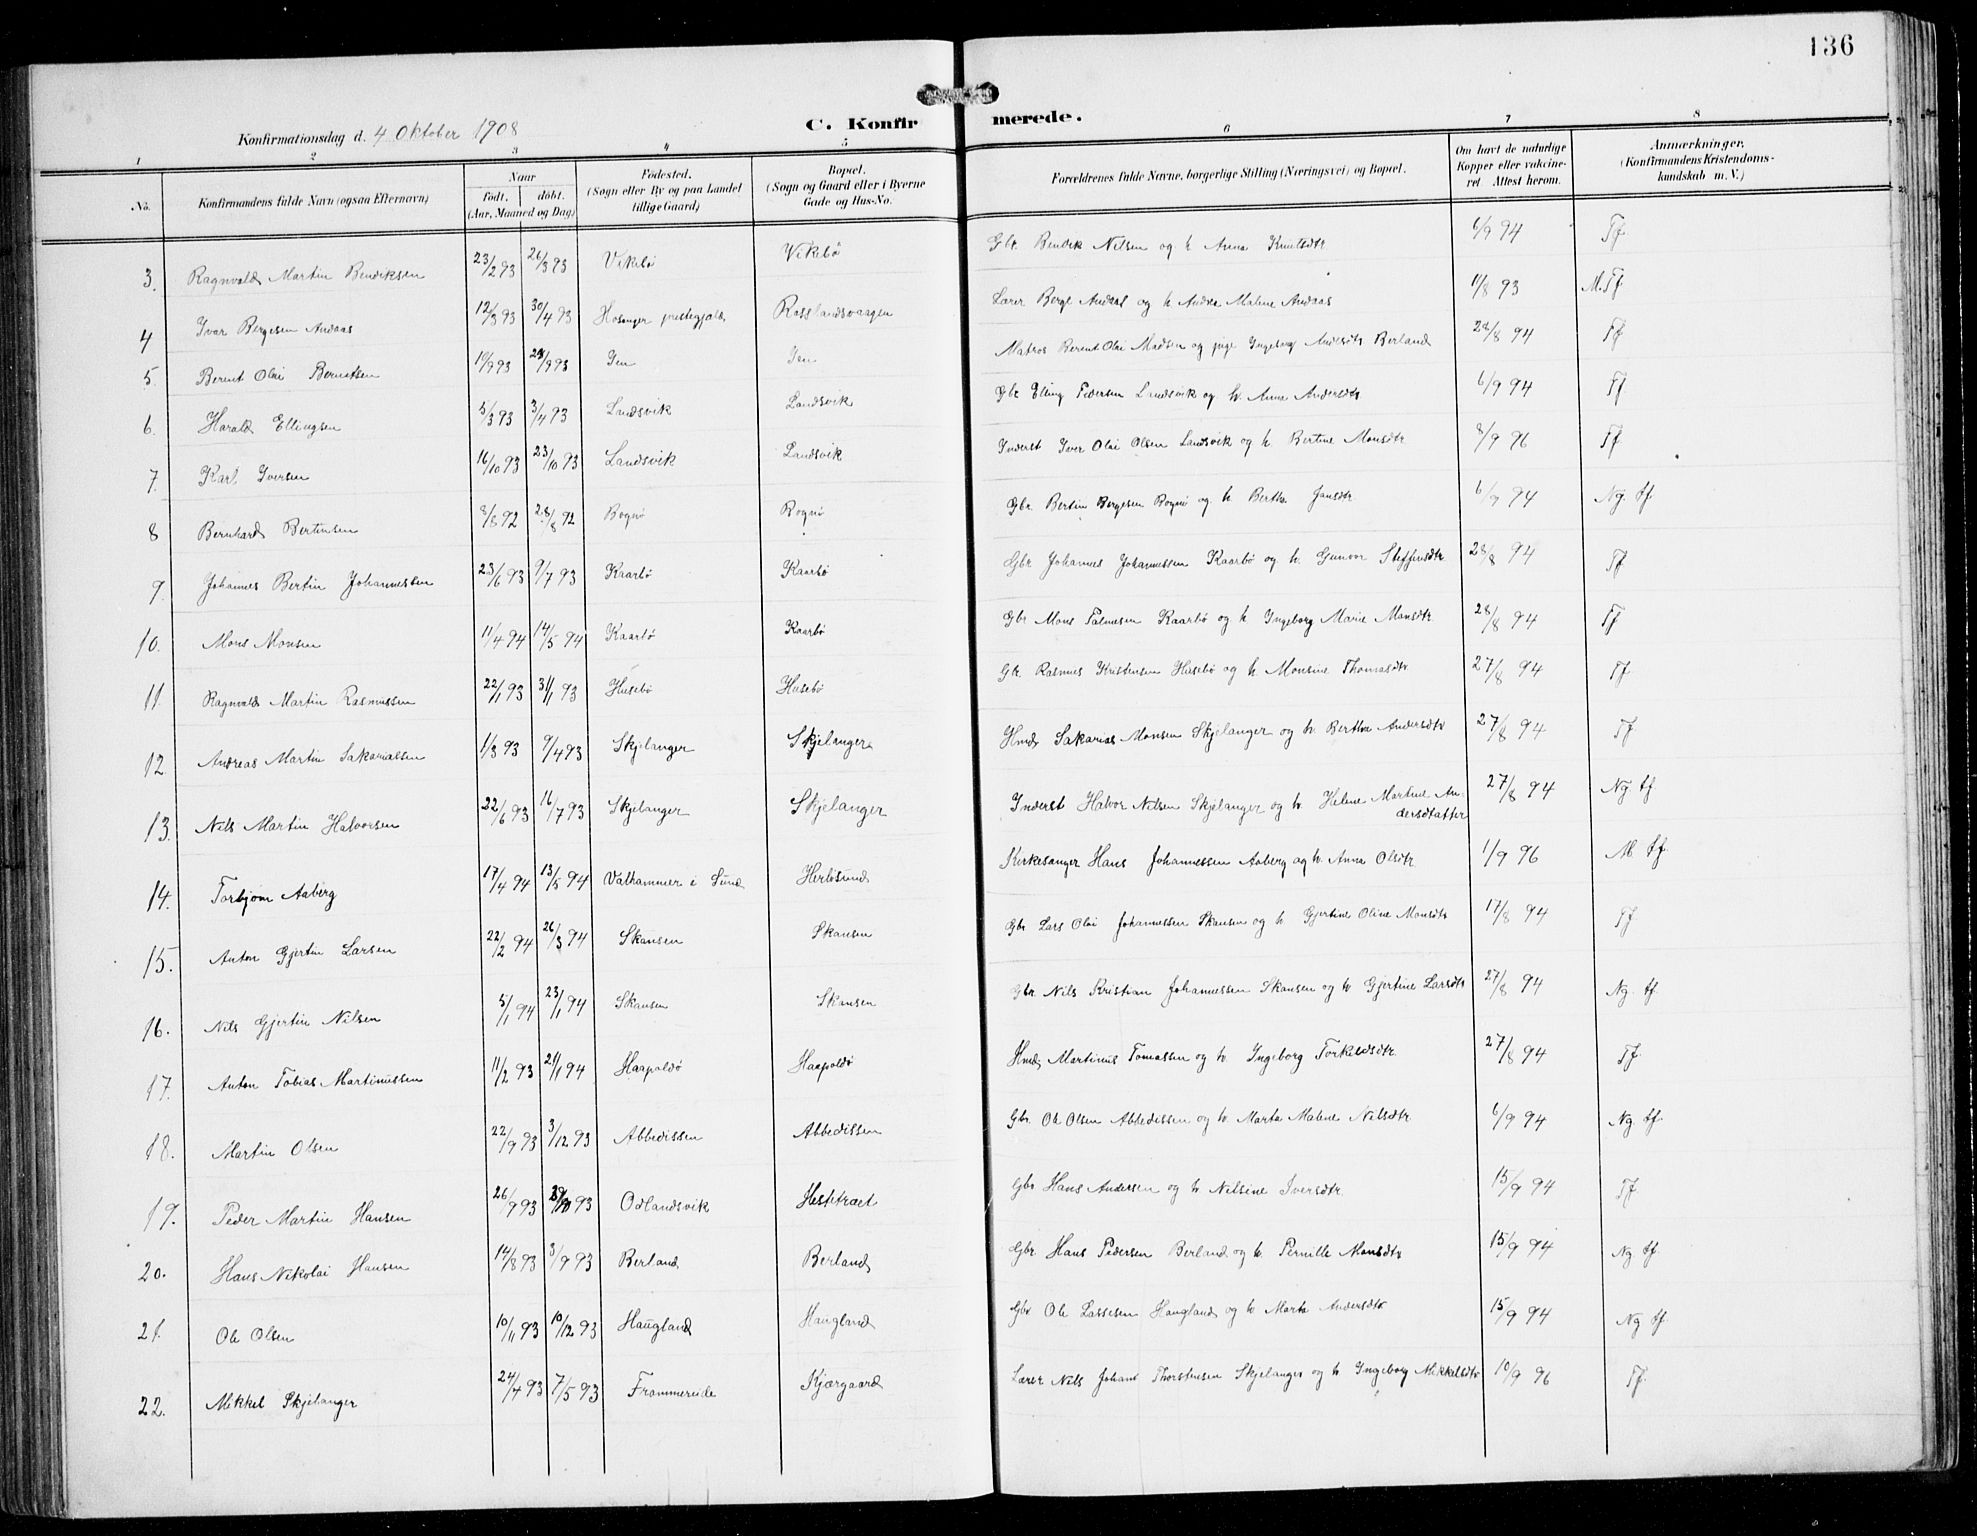 136
Konfirmationsdag d. 4 Oktober 1908
C. Konfirmerede.
1 2 3 4 5 6 7 8
No. Konfirmandens fulde Navn (ogsaa Efternavn) Naar født. døbt. (Aar, Maaned og Dag) Fødested. (Sogn eller By og paa Landet tillige Gaard) Bopæl. (Sogn og Gaard eller i Byerne Gade og Hus-No. Forældrenes fulde Navne, borgerlige Stilling (Næringsvei) og Bopæl. Om havt de naturlige Kopper eller vakcineret Attest herom. Anmærkninger, (Konfirmandens Kristendomskundskab m. V.)
3. Ragnvald Martin Bendiksen 23/2 93 26/3 93 Vikebø Vikebø Gbr. Bendik Nilsen og h. Anna Knutsdtr 6/9 94 Tf.
4 Ivar Bergesen Andaas 12/3 93 30/4 93 Hosanger prestegjæld Rosslandsvaagen Lærer Berge Andaas og h Andrea Malene Andaas 11/8 93 M. Tf
5. Berent Olai Berentsen 10/9 93 24/9 93 Io Matros Berent Olai Madsen og pige Ingeborg Andersdtr Berland 28/8 94 Tf
6. Harald Ellingsen 5/3 93 3/4 93 Landsvik Landsvik Gbr Elling Pedersen Landsvik og h. Anne Andersdtr 6/9 94 Tf
7. Karl Iversen 16/10 93 23/10 93 Landsvik Landsvik Inderst Iver Olai Olsen Landsvik og h Bertine Monsdtr 8/9 96 Tf
8 Bernhard Bertinsen 8/8 92 28/8 92 Bognø Bognø Gbr. Bertin Bergesen Bognø og h Berthe Jansdtr 6/9 94 Ng. tf.
9. Johannes Bertin Johannessen 23/6 93 9/7 93 Kaarbø Kaarbø Gbr Johannes Johannessen Kaarbø og h. Gunvor Steffensdtr 28/8 94 Tf
10. Mons Monsen 11/4 94 14/5 94 Kaarbø Kaarbø Gbr Mons Palmesen Kaarbø og h Ingeborg Marie Monsdtr. 28/8 94 Tf
11. Ragnvald Martin Rasmussen 22/1 93 31/1 93 Husebø Husebø Gbr. Rasmus Kristensen Husebø og h Monsine Thomasdtr 27/8 94 Tf
12. Andreas Martin Sakariassen 1/3 93 9/4 93 Skjelanger Skjelanger Hmd Sakarias Monsen Skjelanger og h. Berthe Andersdtr 27/8 94 Tf
13. Nils Martin Halvorsen 22/6 93 16/7 93 Skjelanger Skjelanger Inderst Halvor Nilsen Skjelanger og h. Helene Martine Andersdatter 27/8 94 Ng. tf.
14. Torbjørn Aaberg 17/4 94 13/5 94 Valhammer i Sund Herløsund Kirkesanger Hans Johannessen Aaberg og h. Anna Olsdtr 1/9 96 M. tf.
15. Anton Gjertin Larsen 22/2 94 26/3 94 Skansen Skansen Gbr Lars Olai Johannessen Skansen og h Gjertine Oline Monsdtr 17/8 94 Tf
16. Nils Gjertin Nilsen 5/1 94 23/1 94 Skansen Skansen Gbr. Nils Kristian Johannessen Skansen og h Gjertine Larsdtr 27/8 94 Ng. tf.
17. Anton Tobias Martinussen 11/2 93 21/1 94 Haapoldø Haapoldø Hmd Martinus Tomassen og h. Ingeborg Torkeldsdtr. 27/8 94 Tf
18. Martin Olsen 22/9 93 3/12 93 Abbedissen Abbedissen Gbr. Ole Olsen Abbedissen og h. Marta Malene Nilsdtr. 6/9 94 Ng. tf.
19. Peder Martin Hansen 26/9 93 29/10 93 Odlandsvik Hestetræet Gbr Hans Andersen og h Nilsine Iversdtr. 15/9 94 Tf
20. Hans Nikolai Hansen 14/8 93 3/9 93 Berland Berland Gbr. Hans Pedersen Berland og h. Pernille Monsdtr 15/9 94 Ng tf.
21. Ole Olsen 10/11 93 10/12 93 Haugland Haugland Gbr Ole Lassesen Haugland og h Marta Andersdtr 15/9 94 Ng tf.
22. Mikkel Skjelanger 24/4 93 7/5 93 Frammereide Kjærgaard Lærer Nils Johan Thorstensen Skjelanger og h Ingeborg Mikkelsdtr 10/9 96 Tf.